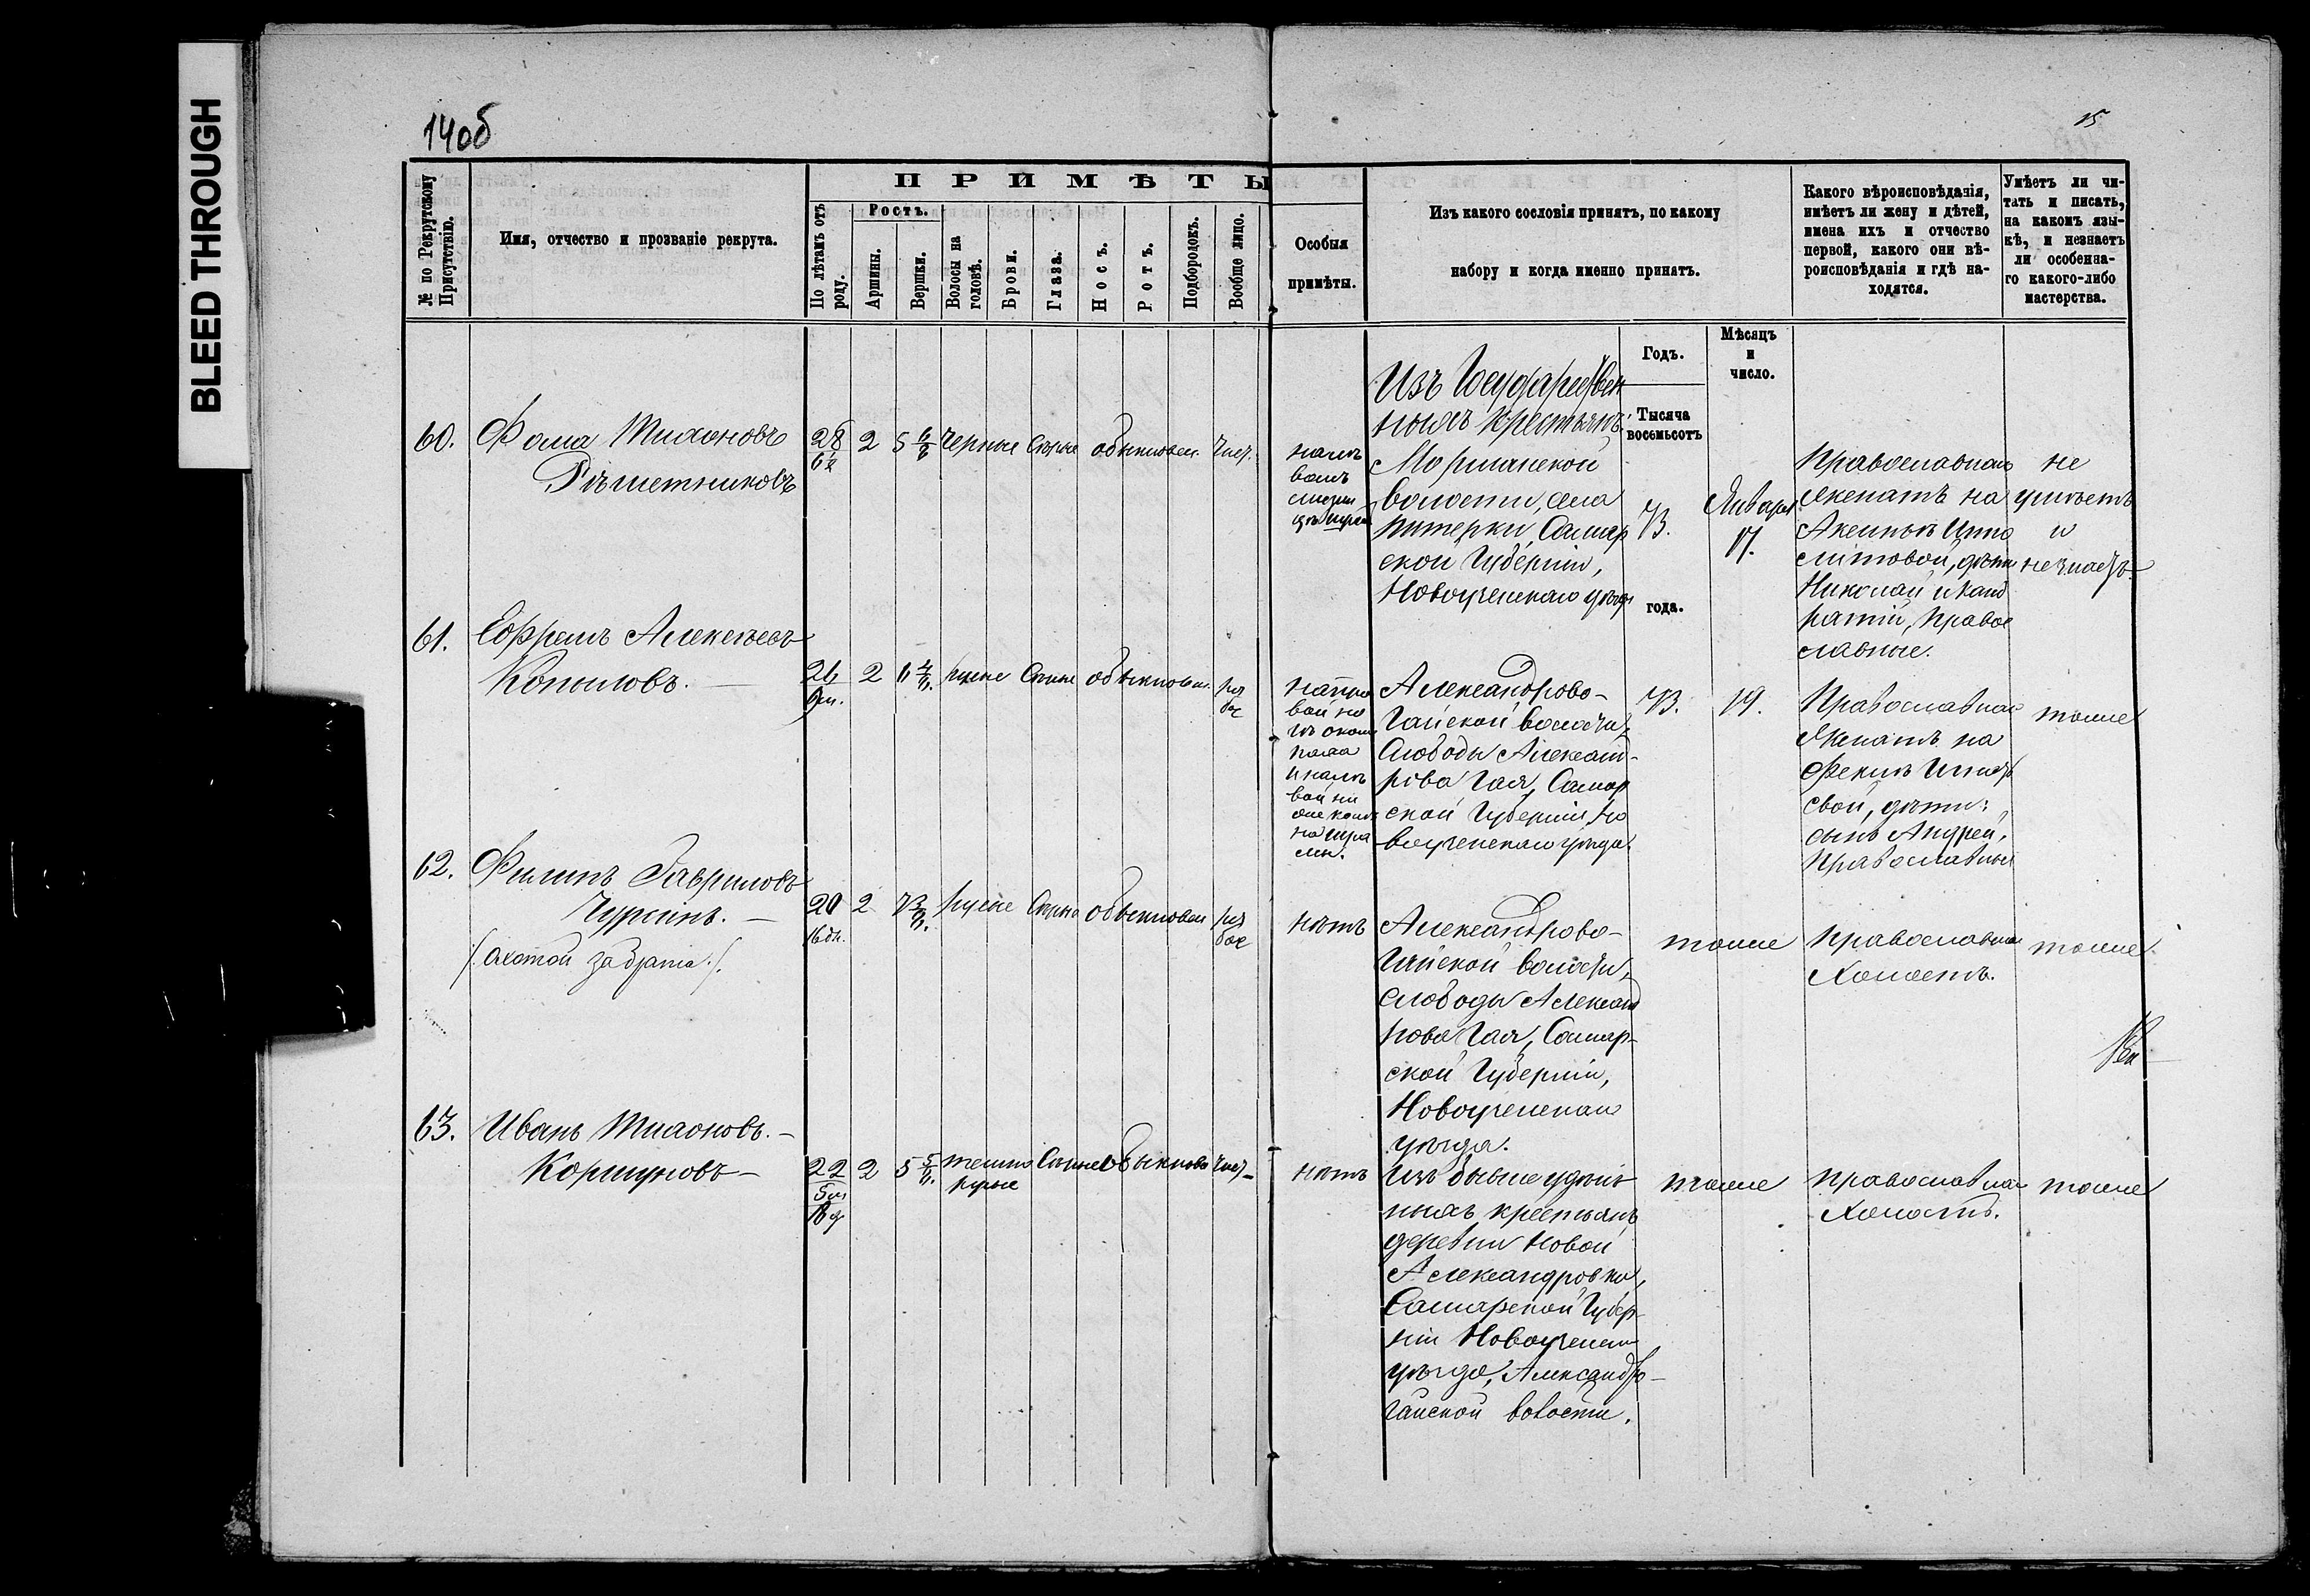 BLEED THROUGH
14об
15
№ по Рекрутскому Присутствію.
Имя, отчество и прозваніе рекрута.
ПРИМѢТЫ
По лѣтамъ отъ роду.
Ростъ.
Аршины.
Вершки.
Волосы на головѣ.
Брови.
Глаза.
Носъ.
Ротъ.
Подбородокъ.
Вообще лицо.
Особыя
примѣты.
Изъ какого сословія принятъ, по какому
набору и когда именно принятъ.
Какого вѣроисповѣданія,
имѣетъ ли жену и дѣтей,
имена ихъ и отчество
первой, какого они вѣ-
роисповѣданія и гдѣ на-
ходятся.
Умѣетъ ли чи-
тать и писать,
на какомъ язы-
кѣ, и незнаетъ
ли особенна-
го какого-либо
мастерства.
Годъ.
Мѣсяцъ
и
число.
Тысяча
восемьсотъ
года.
60. Фома Тихоновъ
Рѣшетниковъ
28 2 5 6/8 черные Сѣрые обыкновен. Чист.
Изъ Государствен
ныхъ крестьянъ
Моршанской
волости, села
Питерки, Самар
ской Губерніи,
Новоузенскаго уѣзда
73.
Января
17.
Православнаго
Женатъ на
Аксиньѣ Иппо
литовой, дѣти
Николай и Конд
ратій, Право
славные.
не
умѣетъ
и
незнаетъ
61. Ефремъ Алексѣевъ
Копыловъ.
26 2 6 4/8. русые Сѣрые обыкновен. ряб
Александрово-
Гайской волости,
Слободы Александ-
рова Гая, Самар
ской Губерніи, Но
воузенскаго уѣзда.
73. 19.
Православнаго
Женатъ на
свой, дѣти:
сынъ Андрей,
Православные
тоже
62. Филипъ Гавриловъ
Чуркинъ.
(охотой за брата).
20 2 7 3/8. русые Сѣрые обыкновен ряб
16 дн.
нѣтъ
Александрово-
Гайской волости,
Слободы Александ
рова Гая, Самар-
ской Губерніи,
Новоузенскаго
уѣзда.
тоже
Православнаго
Холостъ.
тоже
63. Иванъ Тихоновъ.
Коршуновъ
22 2 5 5/8. темно Сѣрые обыкнове чист
русые
нѣтъ
Изъ бывше удѣль
ныхъ крестьянъ
деревни Новой
Александровки,
Самарской Губер-
ніи Новоузенск
уѣзда, Александро-
гайской волости.
тоже
Православнаго
Холостъ.
тоже